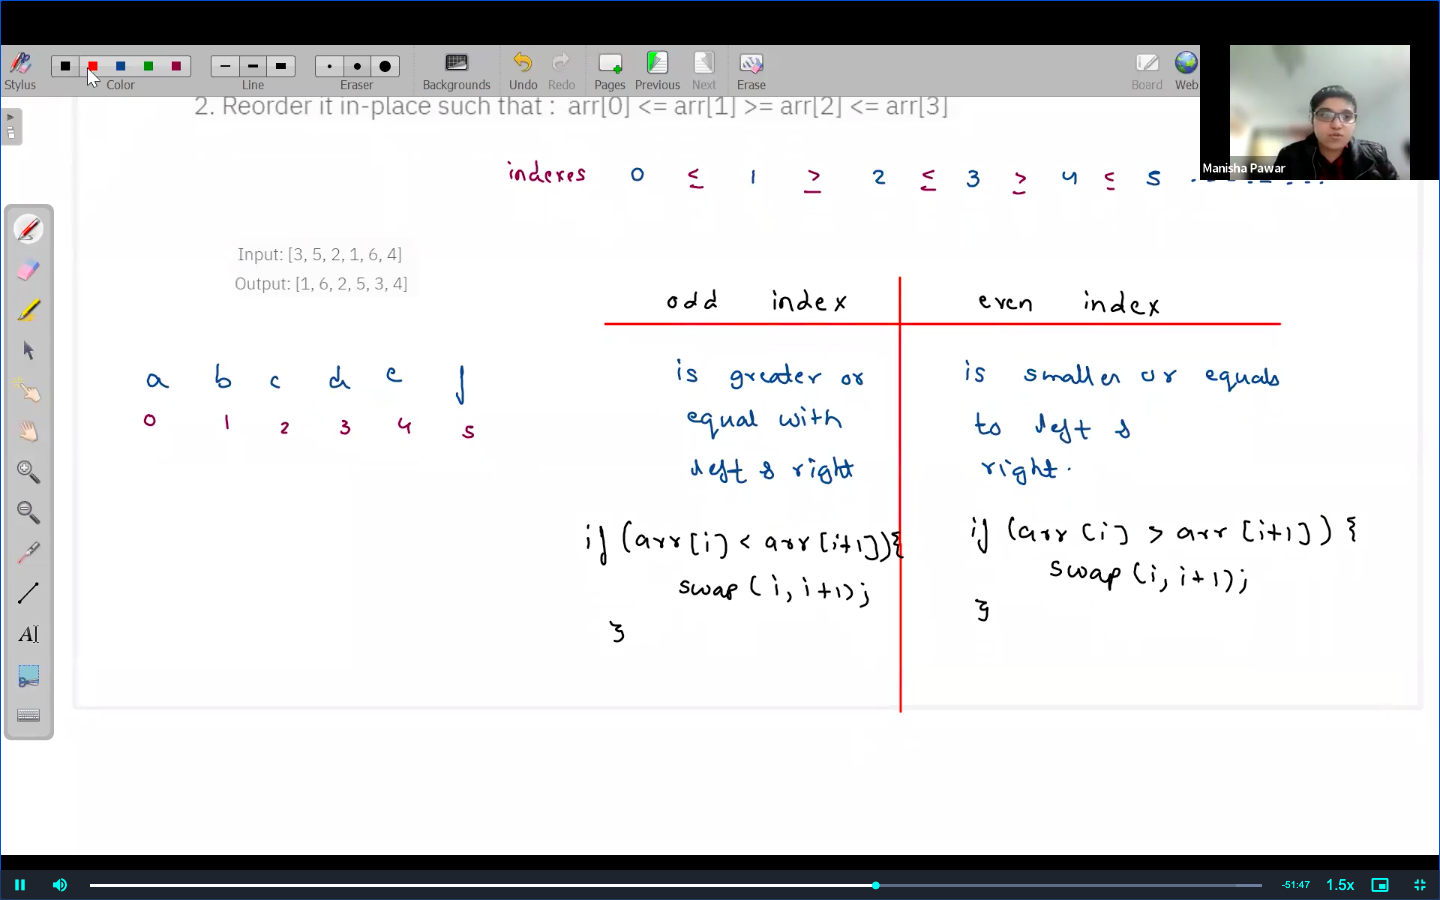 Stylus
Color
Line
Eraser
Backgrounds
Undo
Redo
Pages
Previous
Next
Erase
Board
Web
Manisha Pawar
2. Reorder it in-place such that : arr[0] <= arr[1] >= arr[2] <= arr[3]
indexes 0 ≤ 1 ≥ 2 ≤ 3 ≥ 4 ≤ 5
Input: [3, 5, 2, 1, 6, 4]
Output: [1, 6, 2, 5, 3, 4]
a b c d e f
0 1 2 3 4 5
odd index
is greater or
equal with
left & right
if (arr[i] < arr[i+1]){
swap(i, i+1);
}
even index
is smaller or equals
to left &
right.
if (arr[i] > arr[i+1]) {
swap(i, i+1);
}
AI
-51:47
1.5x